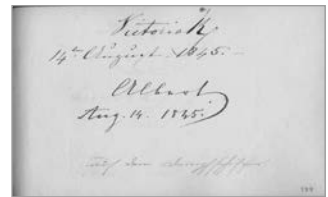 Victoria R
14th August 1845. –
Albert
Aug. 14. 1845.
auf dem